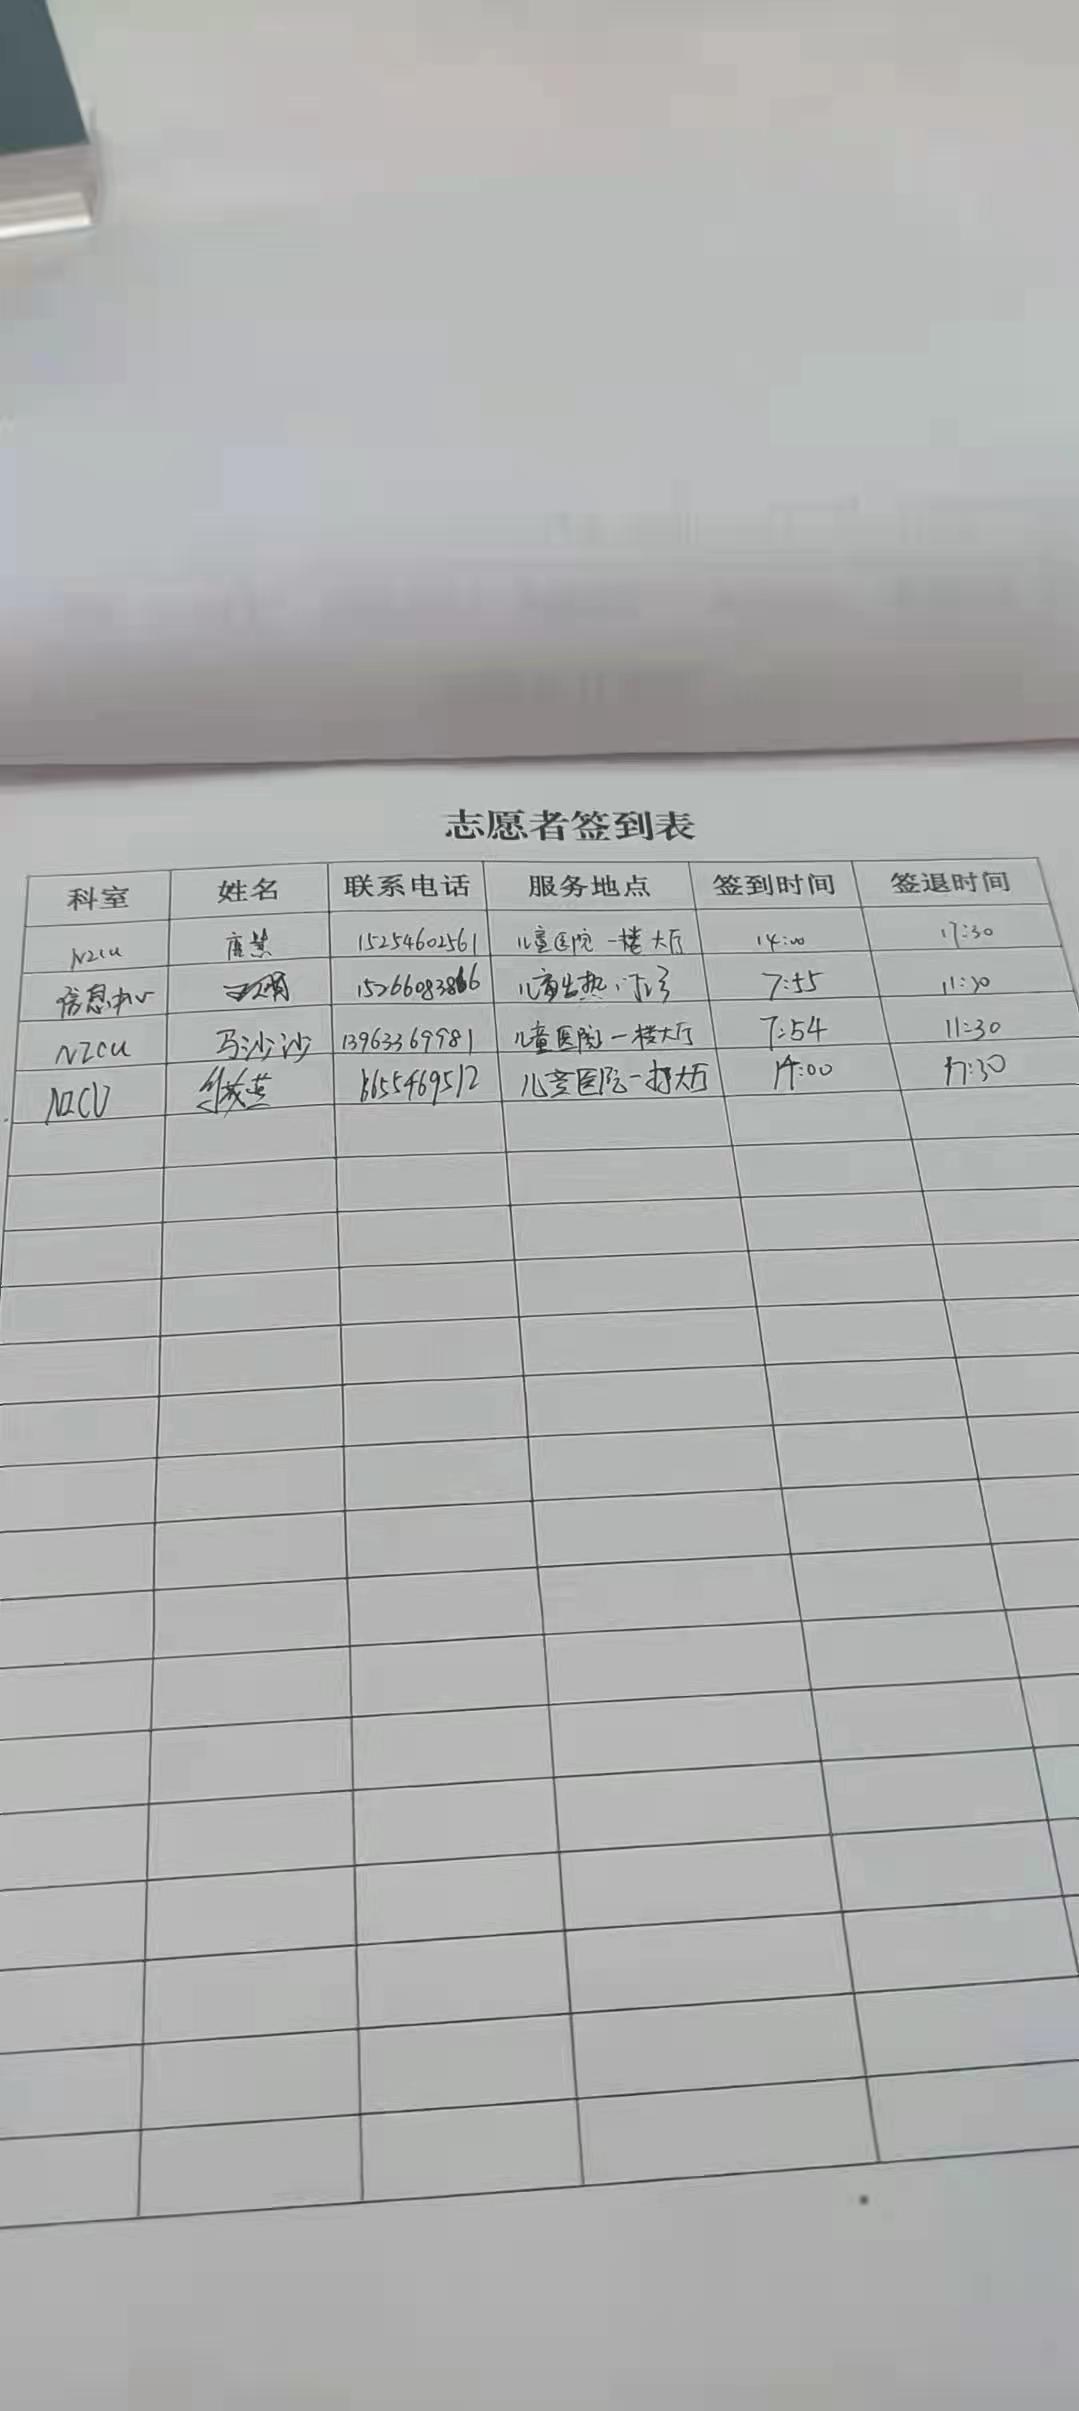 志愿者签到表
科室 姓名 联系电话 服务地点 签到时间 签退时间
NICU 唐慧 15254602561 儿童医院一楼大厅 14:00 17:30
信息中心 15266083866 儿童发热门诊 7:55 11:30
NICU 马沙沙 13963369981 儿童医院一楼大厅 7:54 11:30
NICU 儿童医院一楼大厅 14:00 17:30